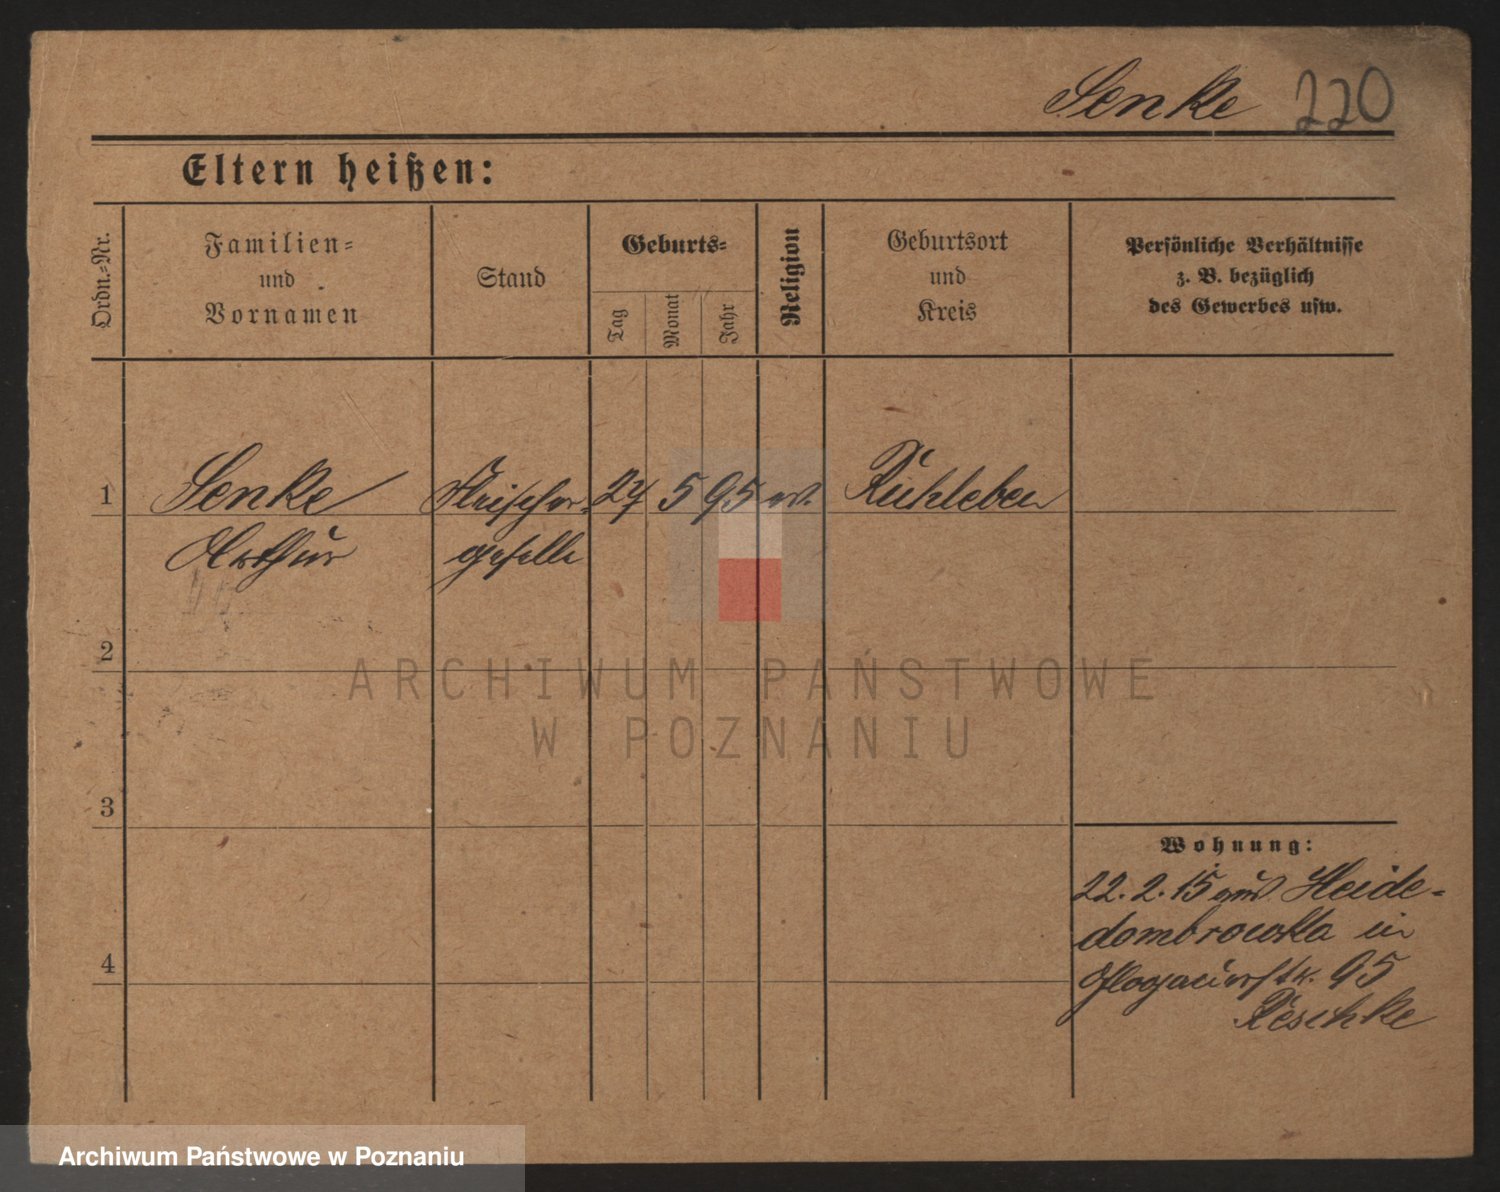 Senke 220
Eltern heißen:
Ordn.-Nr.
Familien-
und
Vornamen
Stand
Geburts-
Tag
Monat
Jahr
Religion
Geburtsort
und
Kreis
Persönliche Verhältnisse
z. B. bezüglich
des Gewerbes usw.
1 Senke Fleischer- 27 5 95 ev. Rühleben
Arthur geselle
2
3
4
Wohnung:
22.2.15 aus Heide-
dombrowka in
Glogauerstr. 95
Reschke
ARCHIWUM PAŃSTWOWE
W POZNANIU
Archiwum Państwowe w Poznaniu